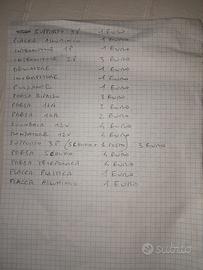 SUPPORTO 3P 1 EURO
PLACCA ALLUMINIO 1 EURO
INTERRUTTORE 1P 1 EURO
INTERRUTTORE 2P 3 EURO
DEVIATORE 1 EURO
INVERTITORE 1 EURO
PULSANTE 1 EURO
PRESA BIPASSO 3 EURO
PRESA 16A 2 EURO
PRESA 10A 2 EURO
SUONERIA 12V 4 EURO
RONZATORE 12V 4 EURO
SUPPORTO 3P ( 3 EURO
PRESA 4 EURO
PRESA TELEFONICA 4 EURO
PLACCA PLASTICA 1 EURO
PLACCA ALLUMINIO 1 EURO
subito